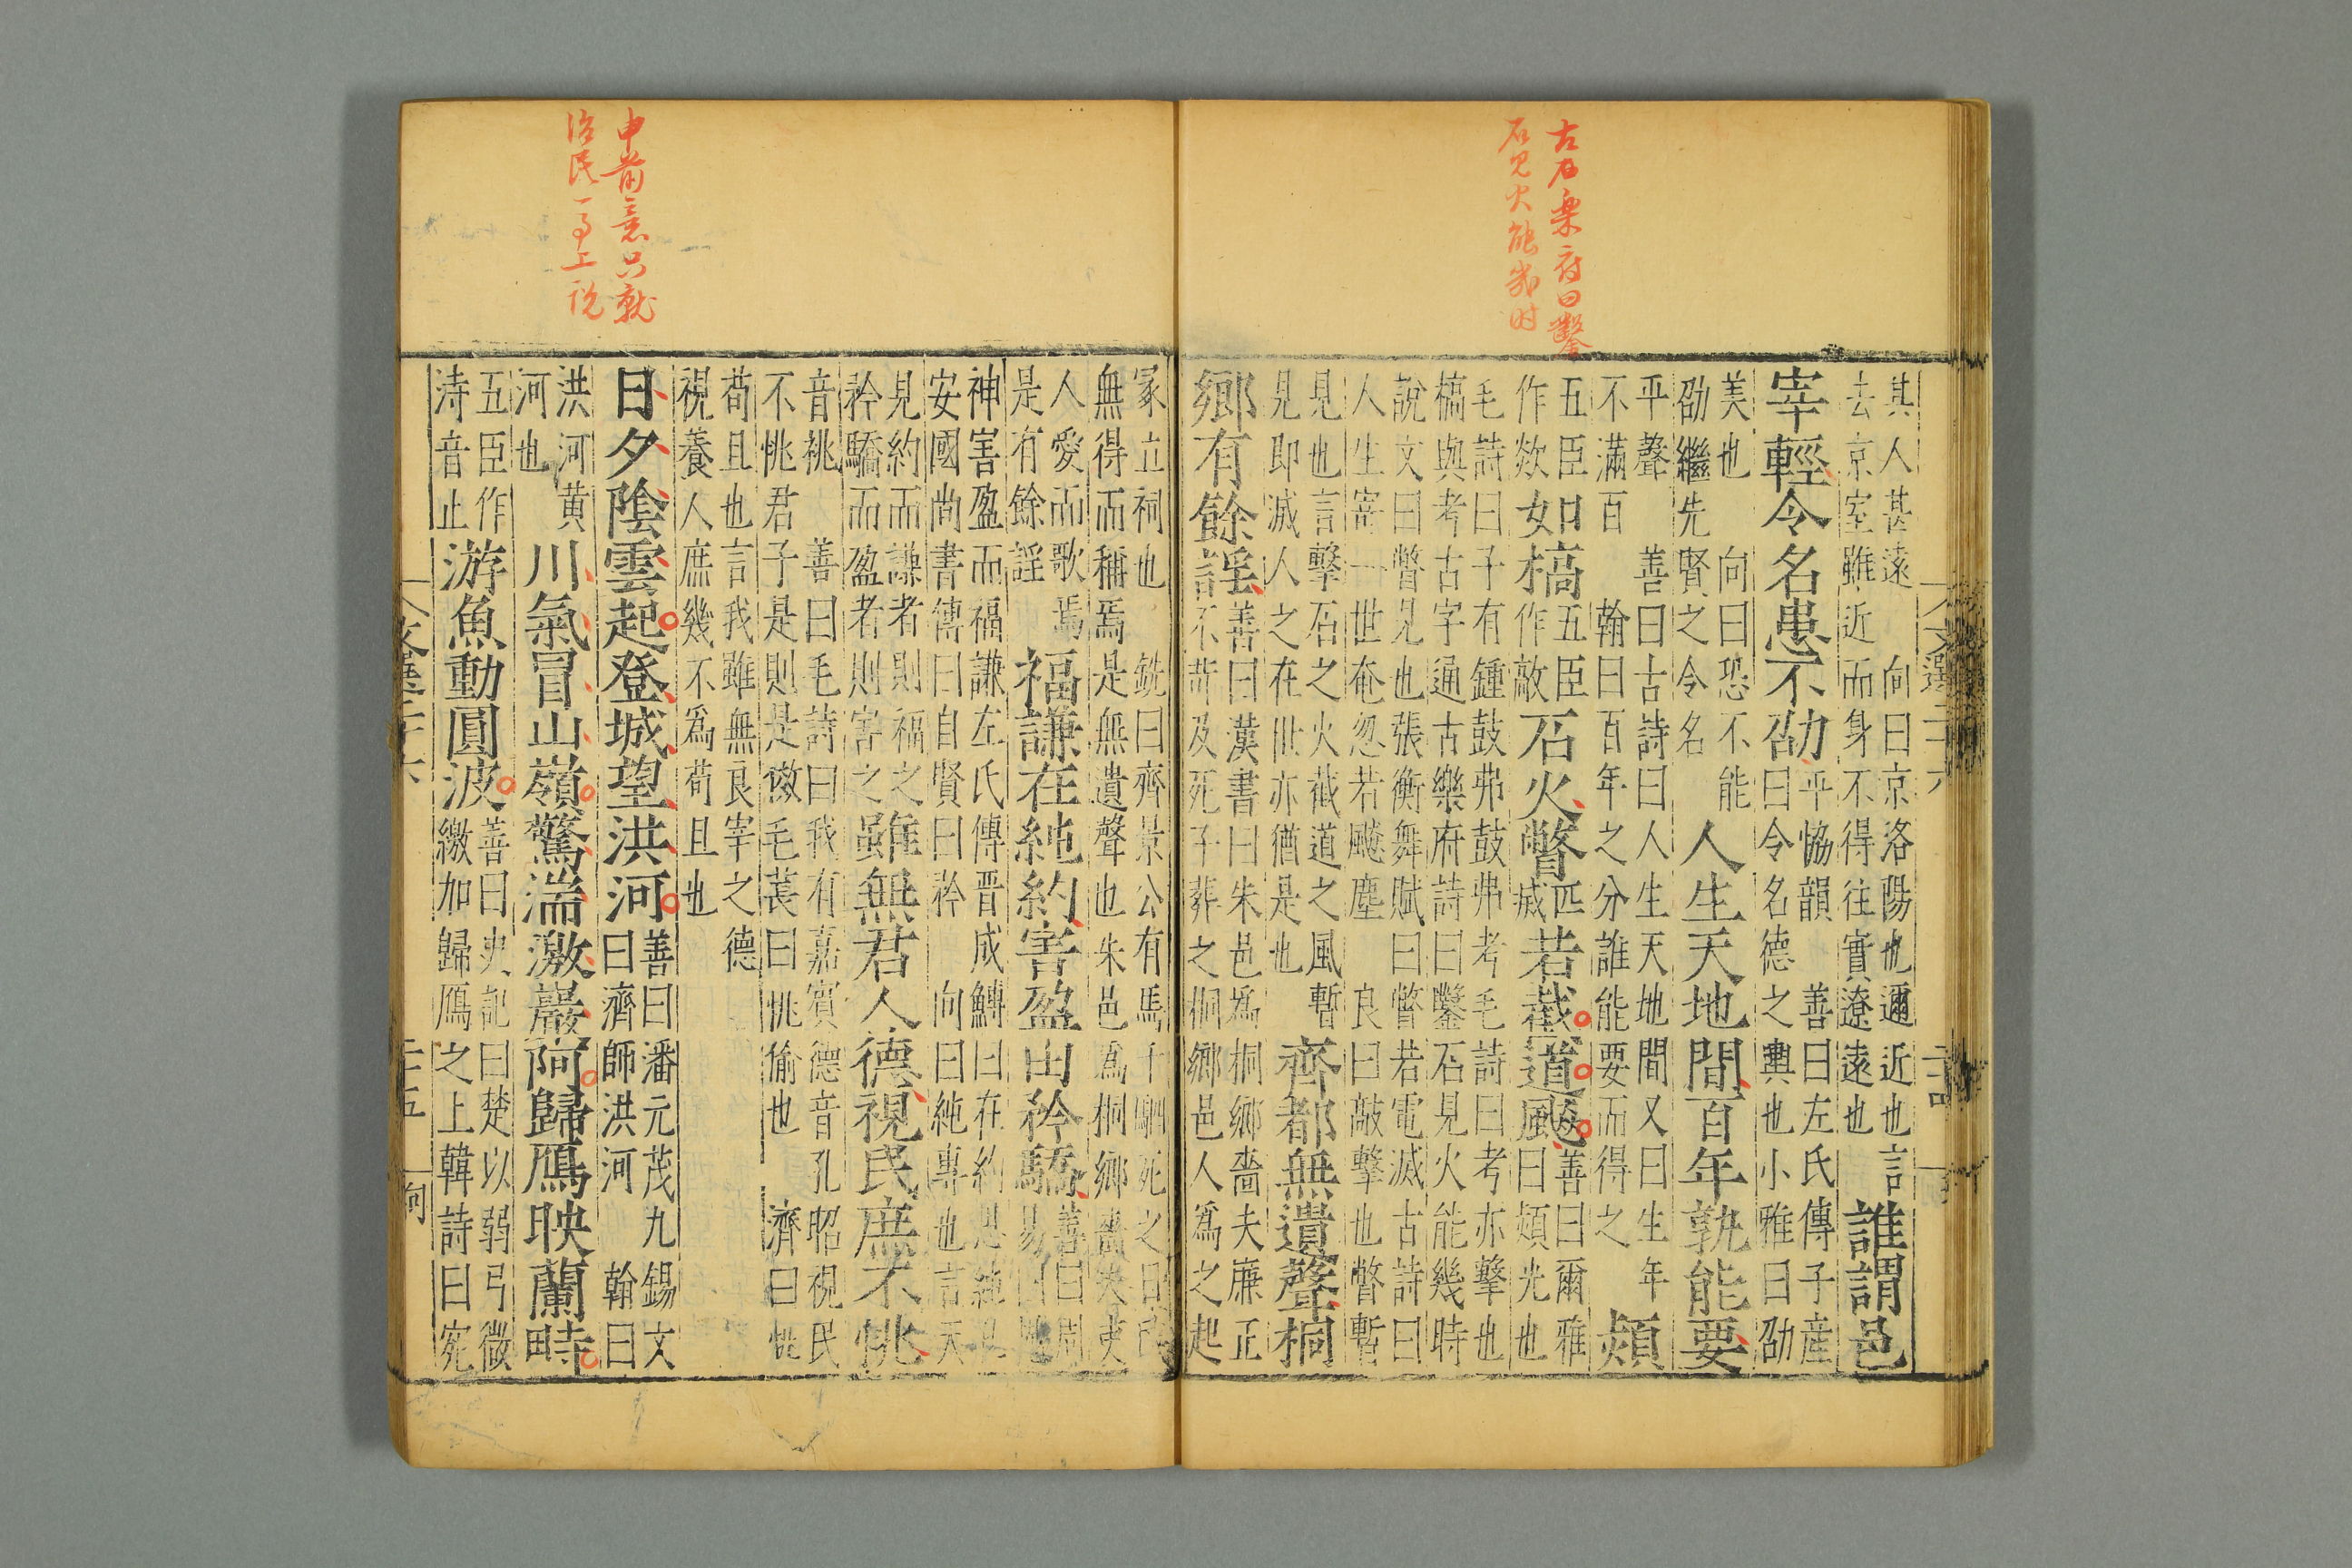 古石樂府曰鑿
石見火能幾时
其人甚遠　向曰京洛陽也邇近也言
去京室雖近而身不得往實遼遠也
誰謂邑
宰輕令名患不劭
平協韻　善曰左氏傳子産
曰令名德之輿也小雅曰劭
美也　向曰恐不能
劭繼先賢之令名
人生天地間百年孰能要
平聲　善曰古詩曰人生天地間又曰生年
不滿百　翰曰百年之分誰能要而得之
熲
五臣
作欻
如
槁
五臣
作敲
石火瞥
匹
烕
若截道飇
善曰爾雅
曰熲光也
毛詩曰子有鍾鼓弗鼓弗考毛詩曰考亦擊也
槁與考古字通古樂府詩曰鑿石見火能幾時
說文曰瞥見也張衡舞賦曰瞥若電滅古詩曰
人生寄一世奄忽若飇塵　良曰敲擊也瞥暫
見也言擊石之火截道之風暫
見即滅人之在世亦猶是也
齊都無遺聲桐
鄉有餘謡
善曰漢書曰朱邑爲桐鄉嗇夫廉正
不苛及死子葬之桐鄉邑人爲之起
文選二十六
申前意只就
治民一事上說
冢立祠也　銑曰齊景公有馬千駟死之日民
無得而稱焉是無遺聲也朱邑爲桐鄉嗇夫吏
人愛而歌焉
是有餘謡
福謙在純約害盈由矜驕
善曰周
易曰鬼
神害盈而福謙左氏傳晋成鱄曰在約思純孔
安國尚書傳曰自賢曰矜　向曰純專也言天
見約而謙者則福之
矜驕而盈者則害之
雖無君人德視民庶不恌
音祧　善曰毛詩曰我有嘉賓德音孔昭視民
不恌君子是則是傚毛萇曰恌偷也　濟曰恌
苟且也言我雖無良宰之德
視養人庶幾不爲苟且也
日夕陰雲起登城望洪河
善曰潘元茂九錫文
曰濟師洪河　翰曰
洪河黄
河也
川氣冒山嶺驚湍激巖阿歸鴈映蘭畤
五臣作
涛音止
游魚動圓波
善曰史記曰楚以弱弓微
繳加歸鴈之上韓詩曰宛
文選二十六
二十五